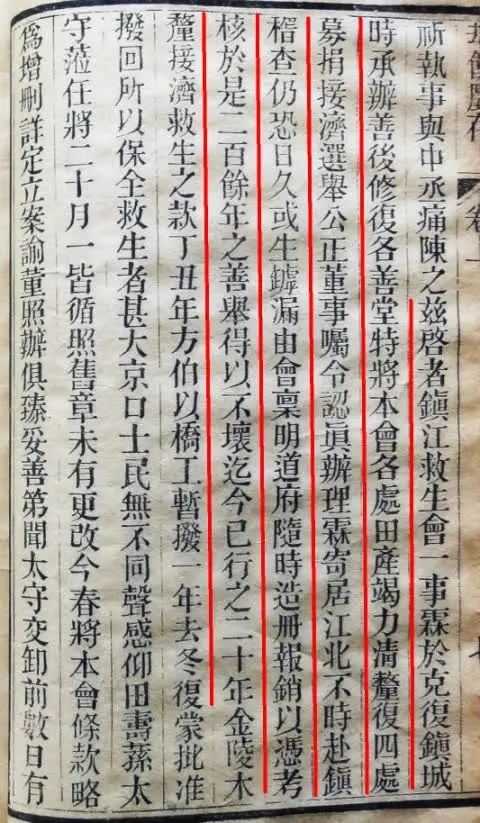 祈執事與中丞痛陳之茲啓者鎮江救生會一事霖於克復鎮城
時承辦善後修復各善堂特將本會各處田產竭力清釐復四處
募捐接濟選舉公正董事囑令認眞辦理霖寄居江北不時赴鎮
稽查仍恐日久或生罅漏由會稟明道府隨時造冊報銷以憑考
核於是二百餘年之善舉得以不壞迄今已行之二十年金陵木
釐接濟救生之款丁丑年方伯以橋工暫撥一年去冬復蒙批准
撥回所以保全救生者甚大京口士民無不同聲感仰田壽蓀太
守蒞任將二十月一皆循照舊章未有更改今春將本會條款略
爲增刪詳定立案諭董照辦俱臻妥善第聞太守交卸前數日有